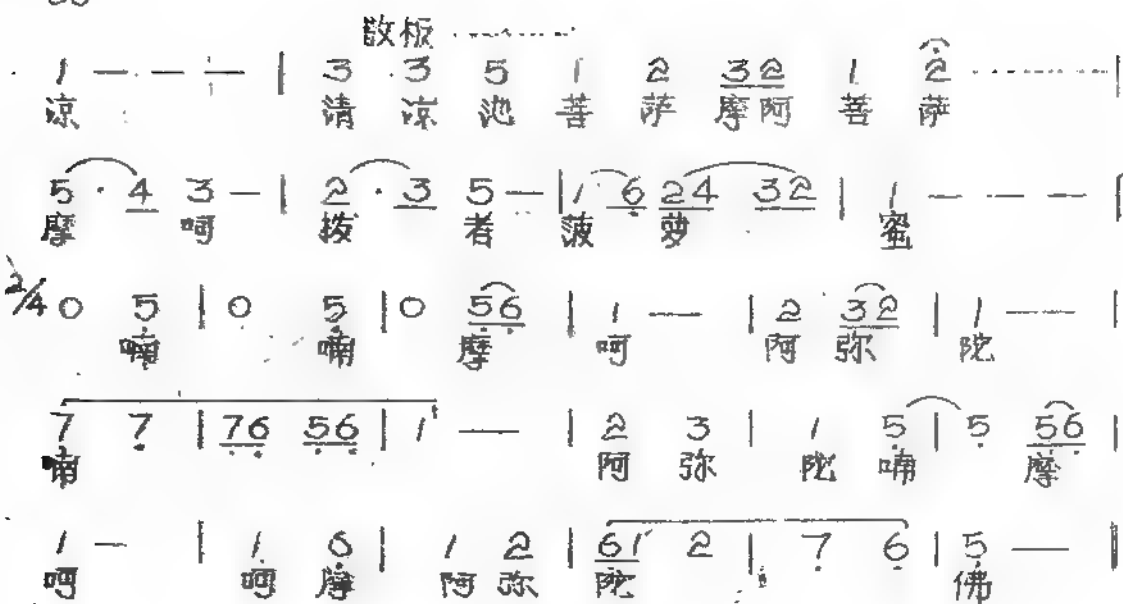 散板
1 — — — | 3 3 5 1 2 32 1 2 |
凉 清 凉 池 菩 萨 摩 阿 菩 萨
5 · 4 3 — | 2 · 3 5 — | 1 6 24 32 | 1 — — — |
摩 呵 拨 者 菠 萝 蜜
2/4 0 5 | 0 5 | 0 56 | 1 — | 2 32 | 1 — |
喃 喃 摩 呵 阿 弥 陀
7 7 | 76 56 | 1 — | 2 3 | 1 5 | 5 56 |
喃 阿 弥 陀 喃 摩
1 — | 1 6 | 1 2 | 61 2 | 7 6 | 5 — ‖
呵 呵 摩 阿 弥 陀 佛